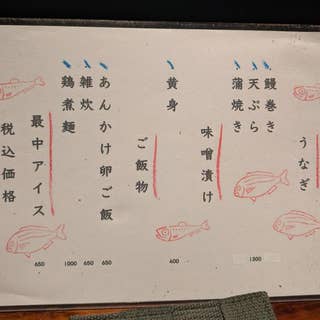 うなぎ
鰻巻き
天ぷら
蒲焼き
1300
味噌漬け
黄身
400
ご飯物
あんかけ卵ご飯
650
雑炊
650
鶏煮麺
1000
最中アイス
650
税込価格